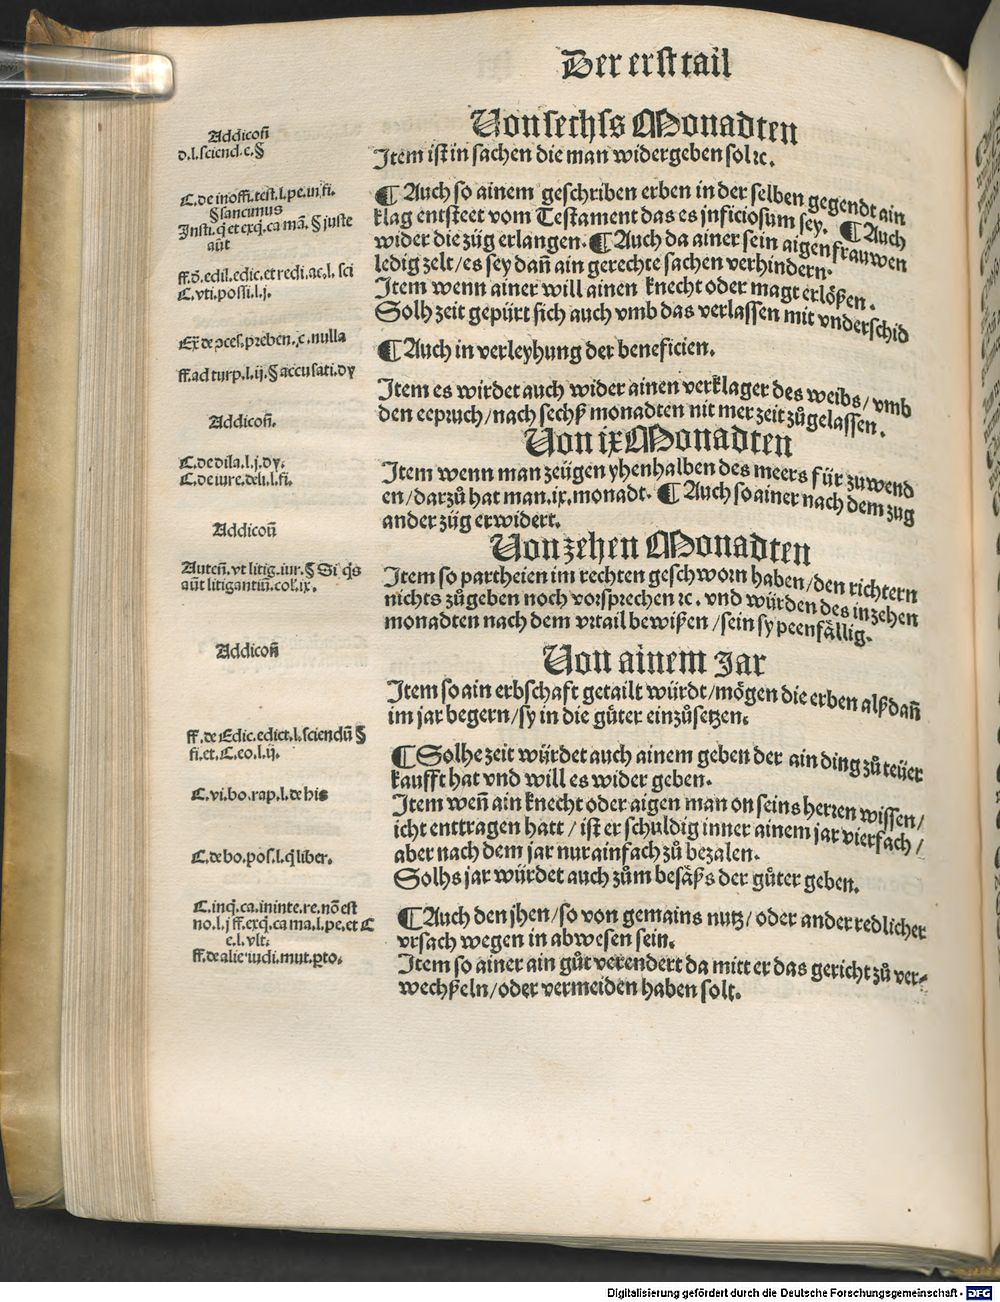 Der erst tail
Von sechſs Monadten
Addicoñ
d.l.sciend.c.§
Item ist in sachen die man widergeben sol ⁊c.
C.de inoffi.test.l.pe.in fi.
§ sancimus
Insti.q̃ et exq̃.ca mã.§ juste
aũt
¶ Auch so ainem geschriben erben in der selben gegendt ain
klag entsteet vom Testament das es jnficiosum sey. ¶ Auch
wider die züg erlangen. ¶ Auch da ainer sein aigen frauwen
ledig zelt/es sey dañ ain gerechte sachen verhindern.
ff.õ.edil.edic.et redi.ac.l. sci
C.vti.possi.l.j.
Item wenn ainer will ainen knecht oder magt erlößen.
Solh zeit gepürt sich auch vmb das verlassen mit vnderschid
Ex̃ de ɔces.preben.c.nulla
¶ Auch in verleyhung der beneficien.
ff.ad turp.l.ij.§ accusati.dy
Item es wirdet auch wider ainen verklager des weibs/vmb
den eepruch/nach sechß monadten nit mer zeit zůgelassen.
Addicoñ.
Von ix Monadten
C.de dila.l.j.dy.
C.de iure.deli.l.fi.
Item wenn man zeügen yhenhalben des meers für zuwend
en/darzů hat man.ix.monadt. ¶ Auch so ainer nach dem zug
ander züg erwidert.
Addicoũ
Von zehen Monadten
Auteñ.vt litig.iur.¶ Si q̃s
aũt litigantiũ.col.ix.
Item so partheien im rechten geschworn haben/den richtern
nichts zůgeben noch vorsprechen ⁊c. vnd würden des in zehen
monadten nach dem vrtail bewißen/sein sy peenfällig.
Addicoñ
Von ainem Jar
Item so ain erbschaft getailt würdt/mögen die erben alßdañ
im jar begern/sy in die güter einzůsetzen.
ff.de Edic.edict.l.sciendũ §
fi.et.C.eo.l.ij.
¶ Solhe zeit würdet auch ainem geben der ain ding zů teüer
kaufft hat vnd will es wider geben.
C.vi.bo.rap.l.de his
Item weñ ain knecht oder aigen man on seins herren wissen/
icht enttragen hatt/ist er schuldig inner ainem jar vierfach/
aber nach dem jar nur ainfach zů bezalen.
C.de bo.pos.l.q̃ liber.
Solhs jar würdet auch zům besäßs der güter geben.
C.inq̃.ca.in inte.re.nõ est
no.l.j ff.exq̃.ca ma.l.pe.et C
e.l.vlt.
¶ Auch den jhen/so von gemains nutz/oder ander redlicher
vrsach wegen in abwesen sein.
ff.de alie iudi.mut.ꝑto.
Item so ainer ain gůt verendert da mitt er das gericht zů ver-
wechßeln/oder vermeiden haben solt.
Digitalisierung gefördert durch die Deutsche Forschungsgemeinschaft - DFG